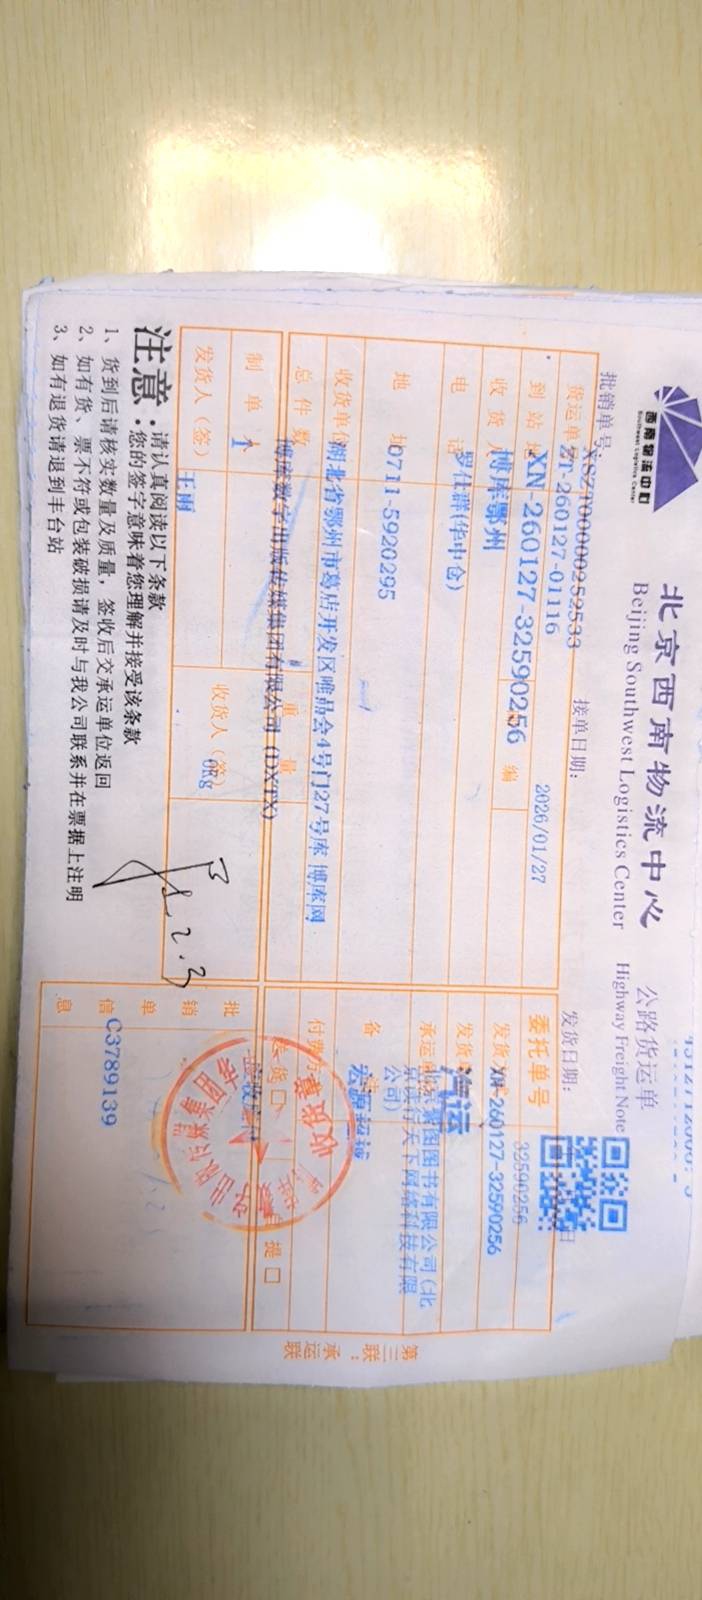 西南物流中心
Southwest Logistics Center
北京西南物流中心
Beijing Southwest Logistics Center
公路货运单
Highway Freight Note
批销单号:
XSZT00000252533
接单日期:
2026/01/27
发货日期:
日
货运单号
ZT-260127-01116
到站
XN-260127-32590256
编
收货人
博库鄂州
电话
罗仕群(华中仓)
地址
0711-5920295
收货单位
湖北省鄂州市葛店开发区唯品会4号门27号库 博库网
总件数
博库数字出版传媒集团有限公司 (DXTX)
重量
制单人
1
0Kg
发货人(签)
王丽
收货人(签)
2.3
委托单号
32590256
发货
XN-260127-32590256
发货
汽运
承运
图书有限公司(北
京读行天下网络科技有限
公司)
备
宏源
付费方
收货章
提 口
批销单信息
C3789139
第三联:承运联
注意:
请认真阅读以下条款
您的签字意味着您理解并接受该条款
1、货到后请核实数量及质量,签收后交承运单位返回
2、如有货、票不符或包装破损请及时与我公司联系并在票据上注明
3、如有退货请退到丰台站